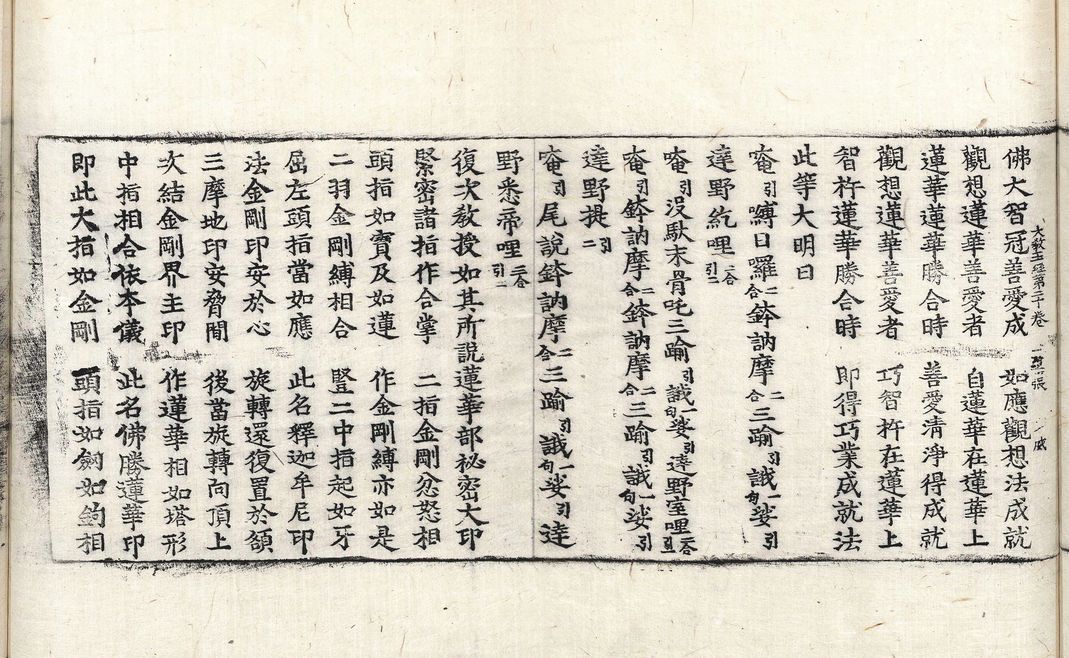 大敎王經第二十卷 一張 咸
佛大智冠善愛成 如應觀想法成就
觀想蓮華善愛者 自蓮華在蓮華上
蓮華蓮華勝合時 善愛清淨得成就
觀想蓮華善愛者 巧智杵在蓮華上
智杵蓮華勝合時 即得巧業成就法
此等大明曰
唵引嚩日囉二合鉢訥摩二合三踰引誐一句娑引
達野紇哩二合引二
唵引沒馱末骨吒三踰引誐一句娑引達野室哩二合引二
唵引鉢訥摩二合鉢訥摩二合三踰引誐一句娑引
達野提引二
唵引尾說鉢訥摩二合三踰引誐一句娑引達
野悉帝哩二合引二
復次敎授如其所說蓮華部祕密大印
緊密諸指作合掌 二指金剛忿怒相
頭指如寶及如蓮 作金剛縛亦如是
二羽金剛縛相合 豎二中指起如牙
屈左頭指當如應 此名釋迦牟尼印
法金剛印安於心 旋轉還復置於額
三摩地印安脅間 後當旋轉向頂上
次結金剛界主印 作蓮華相如塔形
中指相合依本儀 此名佛勝蓮華印
即此大指如金剛 頭指如劒如鉤相